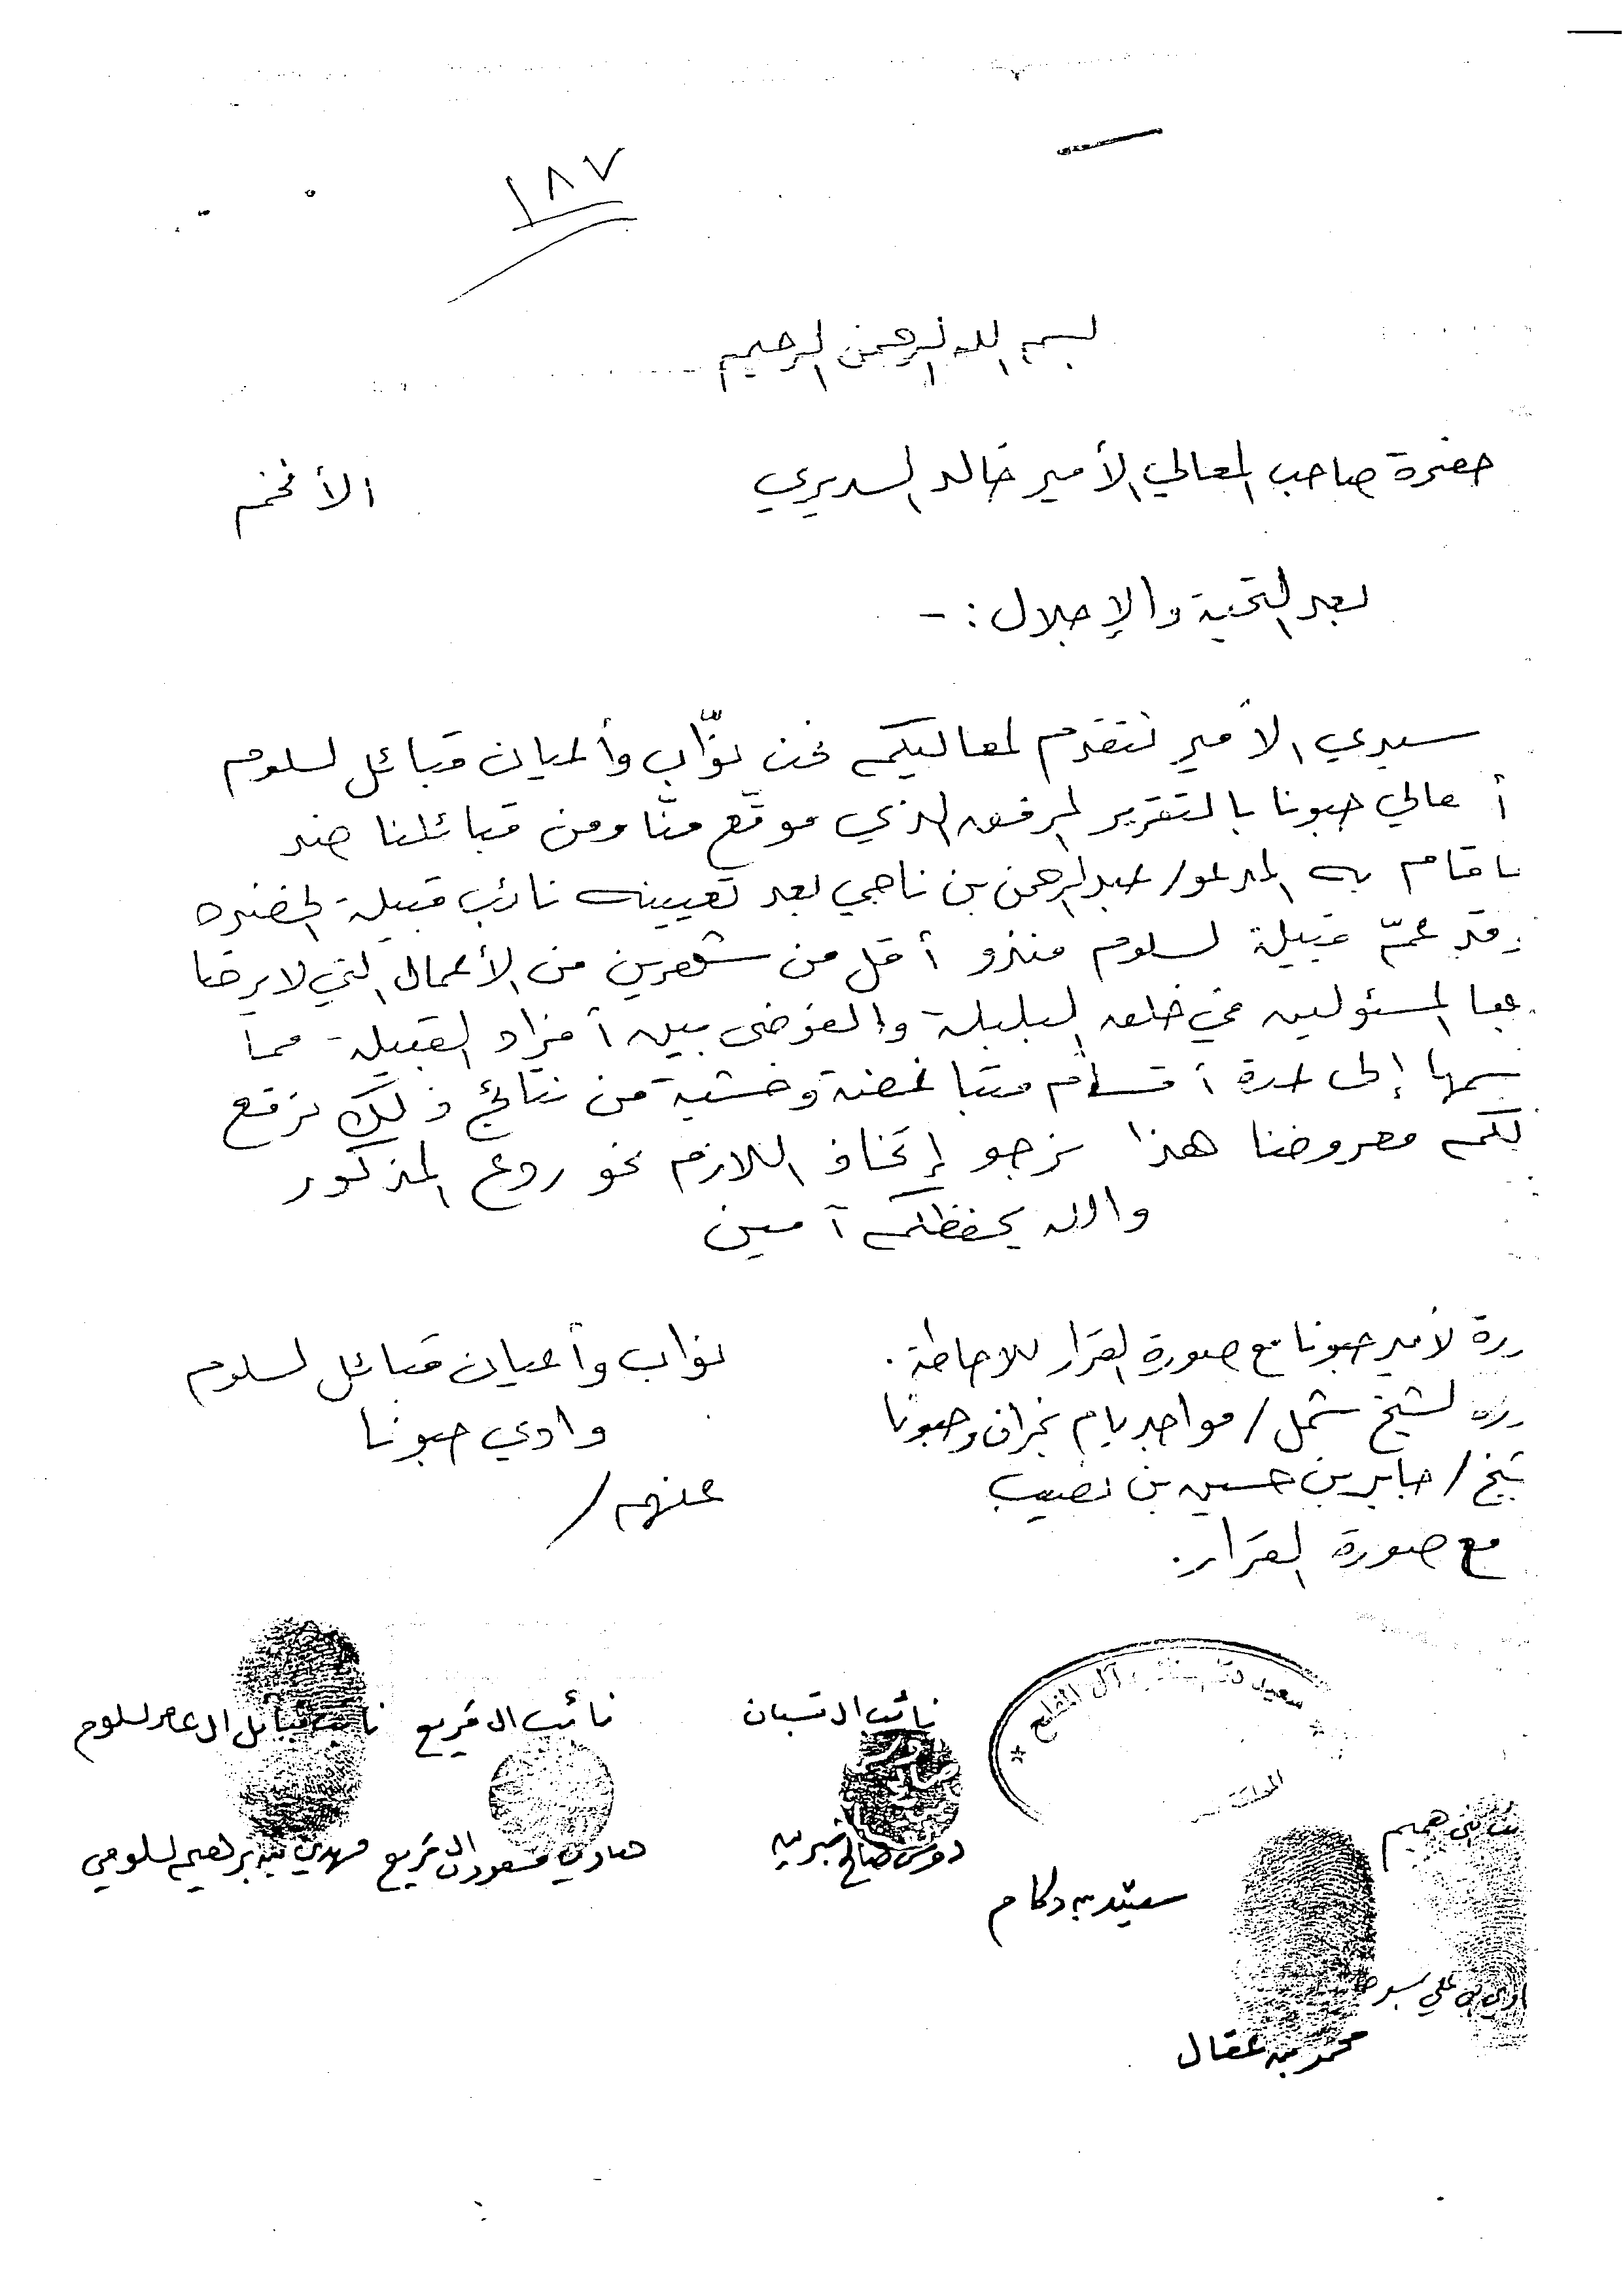 ١٨٧
بسم الله الرحمن الرحيم
حضرة صاحب المعالي الأمير خالد السديري الأفخم
بعد التحية والإجلال : -
سيدي الأمير نتقدم لمعاليكم نحن نوّاب وأعيان قبائل لسلوم
أعالي حبونا بالتقرير المرفق الذي موقّع منّا ومن قبائلنا ضد
ما قام به المدعو/ عبدالرحمن بن ناجي بعد تعيينه نائب قبيلة الخضره
وقد عمّ قبيلة لسلوم منذو أقل من شهرين من الأعمال التي لا يرضا
بها المسئولين في خلق البلبلة والفوضى بين أفراد القبيلة مما
قسمها إلى عدة أقسام متباغضة وخشية من نتائج ذلك نرفع
لكم معروضنا هذا نرجو إتخاذ اللازم نحو روع المذكور
والله يحفظكم آمين
نواب وأعيان قبائل لسلوم
وادي حبونا
عنهم /
صورة لأمير حبونا مع صورة القرار للاحاطة .
صورة لشيخ شمل / مواجد يام نجران وحبونا
شيخ / جابر بن حسين بن نصيب
مع صورة القرار .
سعيد آل المقلع
نائب ال قسبان
نائب ال قريع
نائب قبائل ال عامر لسلوم
صالح
هادي مسعود ال قريع
مهدي بن برهيم لسلومي
هميم
سعيد بن دكام
بن علي
محمد بن عقال